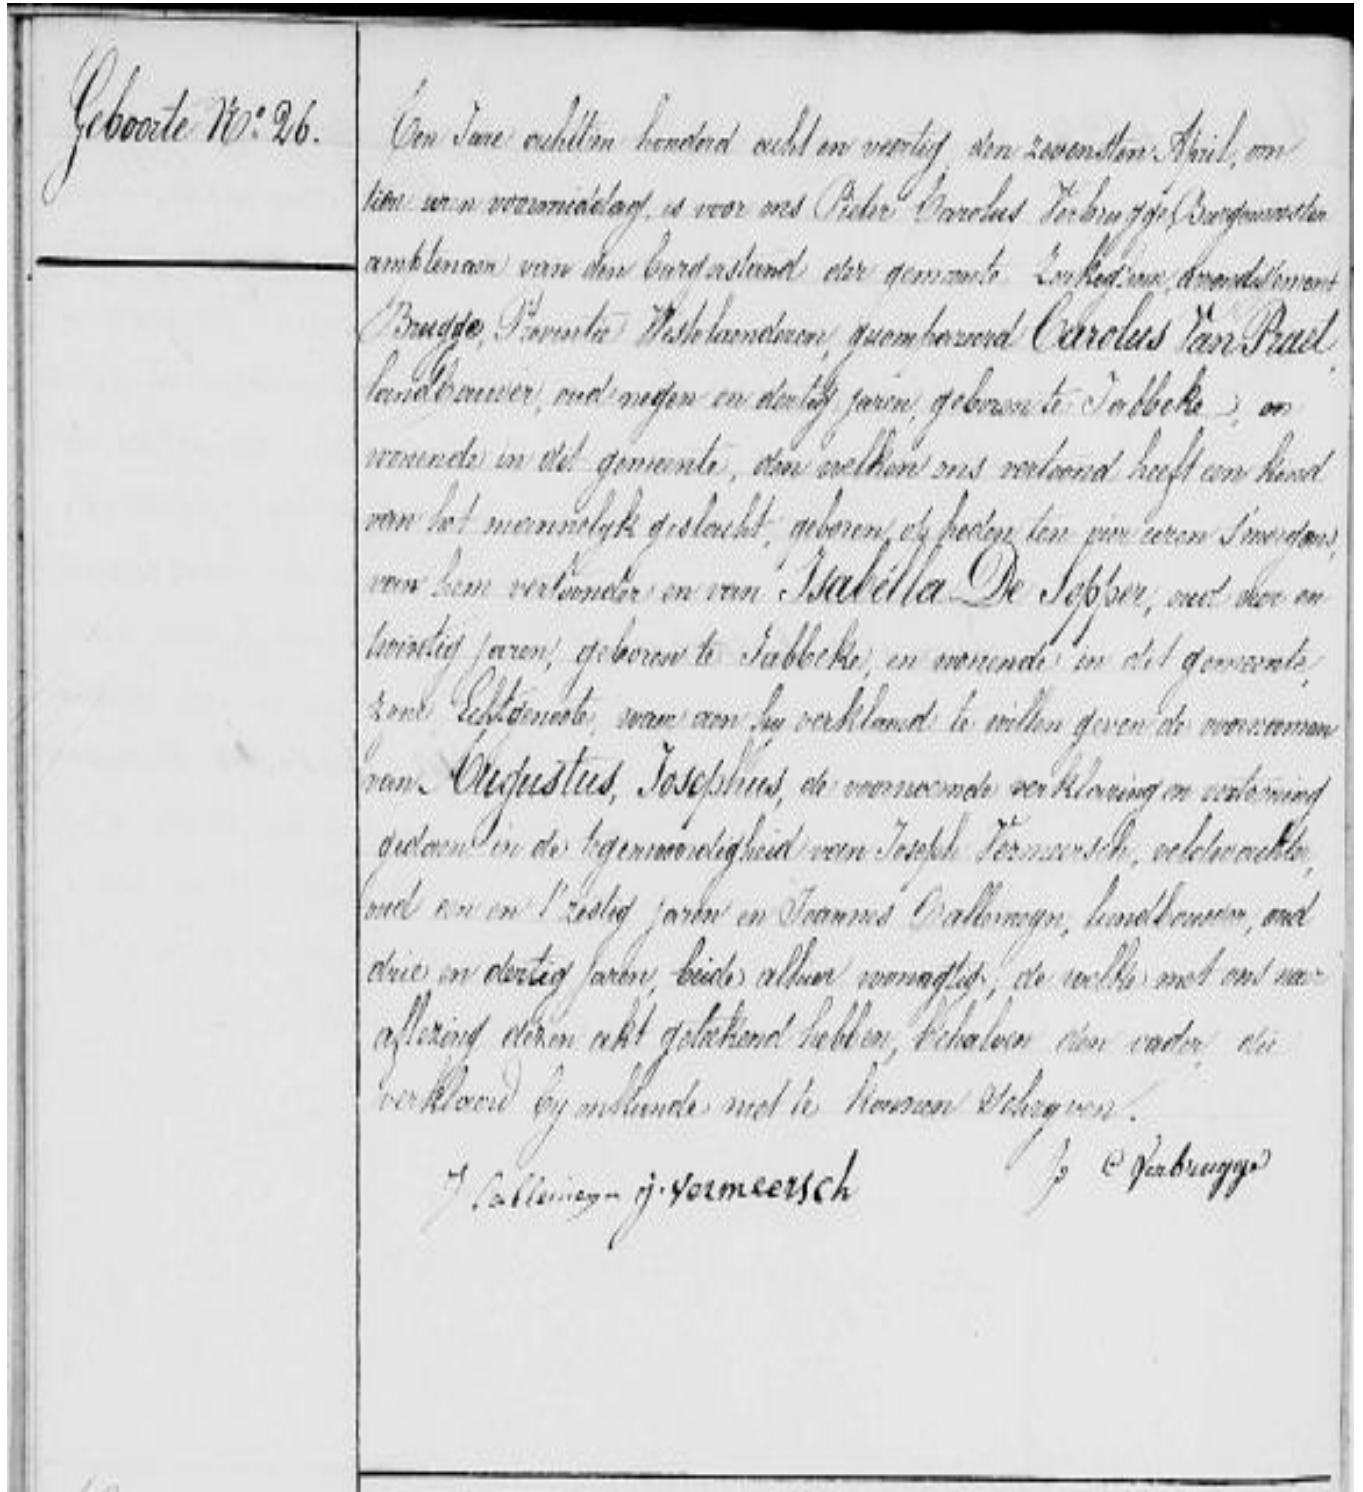 Geboorte No. 26.
Ten Jare achttien honderd acht en veertig, den zevensten April, om
tien uren voormiddag, is voor ons Pieter Carolus Verbrugge, Burgemeester
ambtenaar van den burgerstand der gemeente Zerkeghem, arrondissement
Brugge, Provintie Westvlaanderen, gecompareerd Carolus Van Praet,
landbouwer, oud negen en dertig jaren, geboren te Jabbeke, en
wonende in del gemeente, den welken ons vertoond heeft een kind
van het mannelyk geslacht, geboren, op heden, ten vier uren s'morgens,
van hem vertoonder en van Isabélla De Sopper, oud en
twintig jaren, geboren te Jabbeke, en wonende in del gemeente,
zyne Echtgenoote, waer aen hy verklaard te willen geven de voornamen
van Augustus, Josephus, de voornoemde verklaring en vertooning
gedaen in de tegenwoordigheid van Joseph Vermeersch, veldwachter,
oud een en t'zestig jaren en Joannes Callemeyn, landbouwer, oud
drie en dertig jaren, beide alhier woonagtig, de welke met ons naer
aflezing dezen akt geteekend hebben, behalven den vader, die
verklaerd by niet te konnen schryven.
J Callemeyn j. vermeersch P C Verbrugge